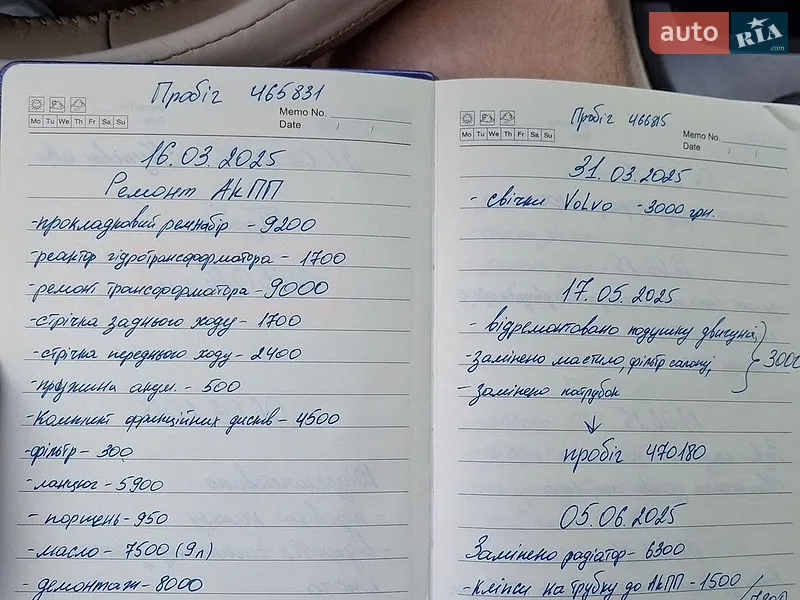 auto RIA .com
Пробіг 465831
Memo No.
Mo Tu We Th Fr Sa Su
Date / /
16.03.2025
Ремонт АкПП
-прокладковий ремнабір - 9200
-реактор гідротрансформатора - 1700
-ремонт трансформатора - 9000
-стрічка заднього ходу - 1700
-стрічка переднього ходу - 2400
-пружина акум. - 500
-Комплект фрикційних дисків - 4500
-фільтр - 300
-ланцюг - 5900
- поршень - 950
-масло - 7500 (9л)
- демонтаж - 8000
Пробіг 466815
Memo No.
Mo Tu We Th Fr Sa Su
Date / /
31.03.2025
- свічки Volvo - 3000 грн.
17.05.2025
- відремонтовано подушку двигуна,
-замінено мастило, фільтр салону; 3000
- замінено патрубок
↓
пробіг 470180
05.06.2025
Замінено радіатор - 6300
-кліпси на трубку до АкПП - 1500